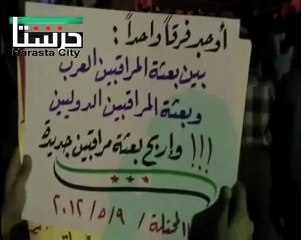 حرستا
Harasta City
أوجد فرقاً واحداً :
بين بعثة المراقبين العرب
وبعثة المراقبين الدوليين
!!! واربح بعثة مراقبين جديدة
المحتلة / ٩/٥/٢٠١٢